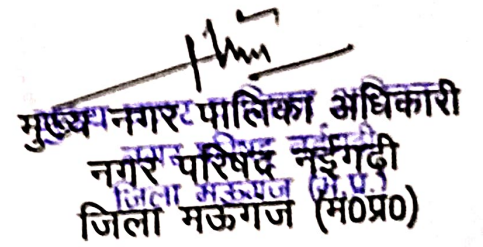 मुख्य नगर पालिका अधिकारी
नगर परिषद नईगढ़ी
जिला मऊगंज (म0प्र0)